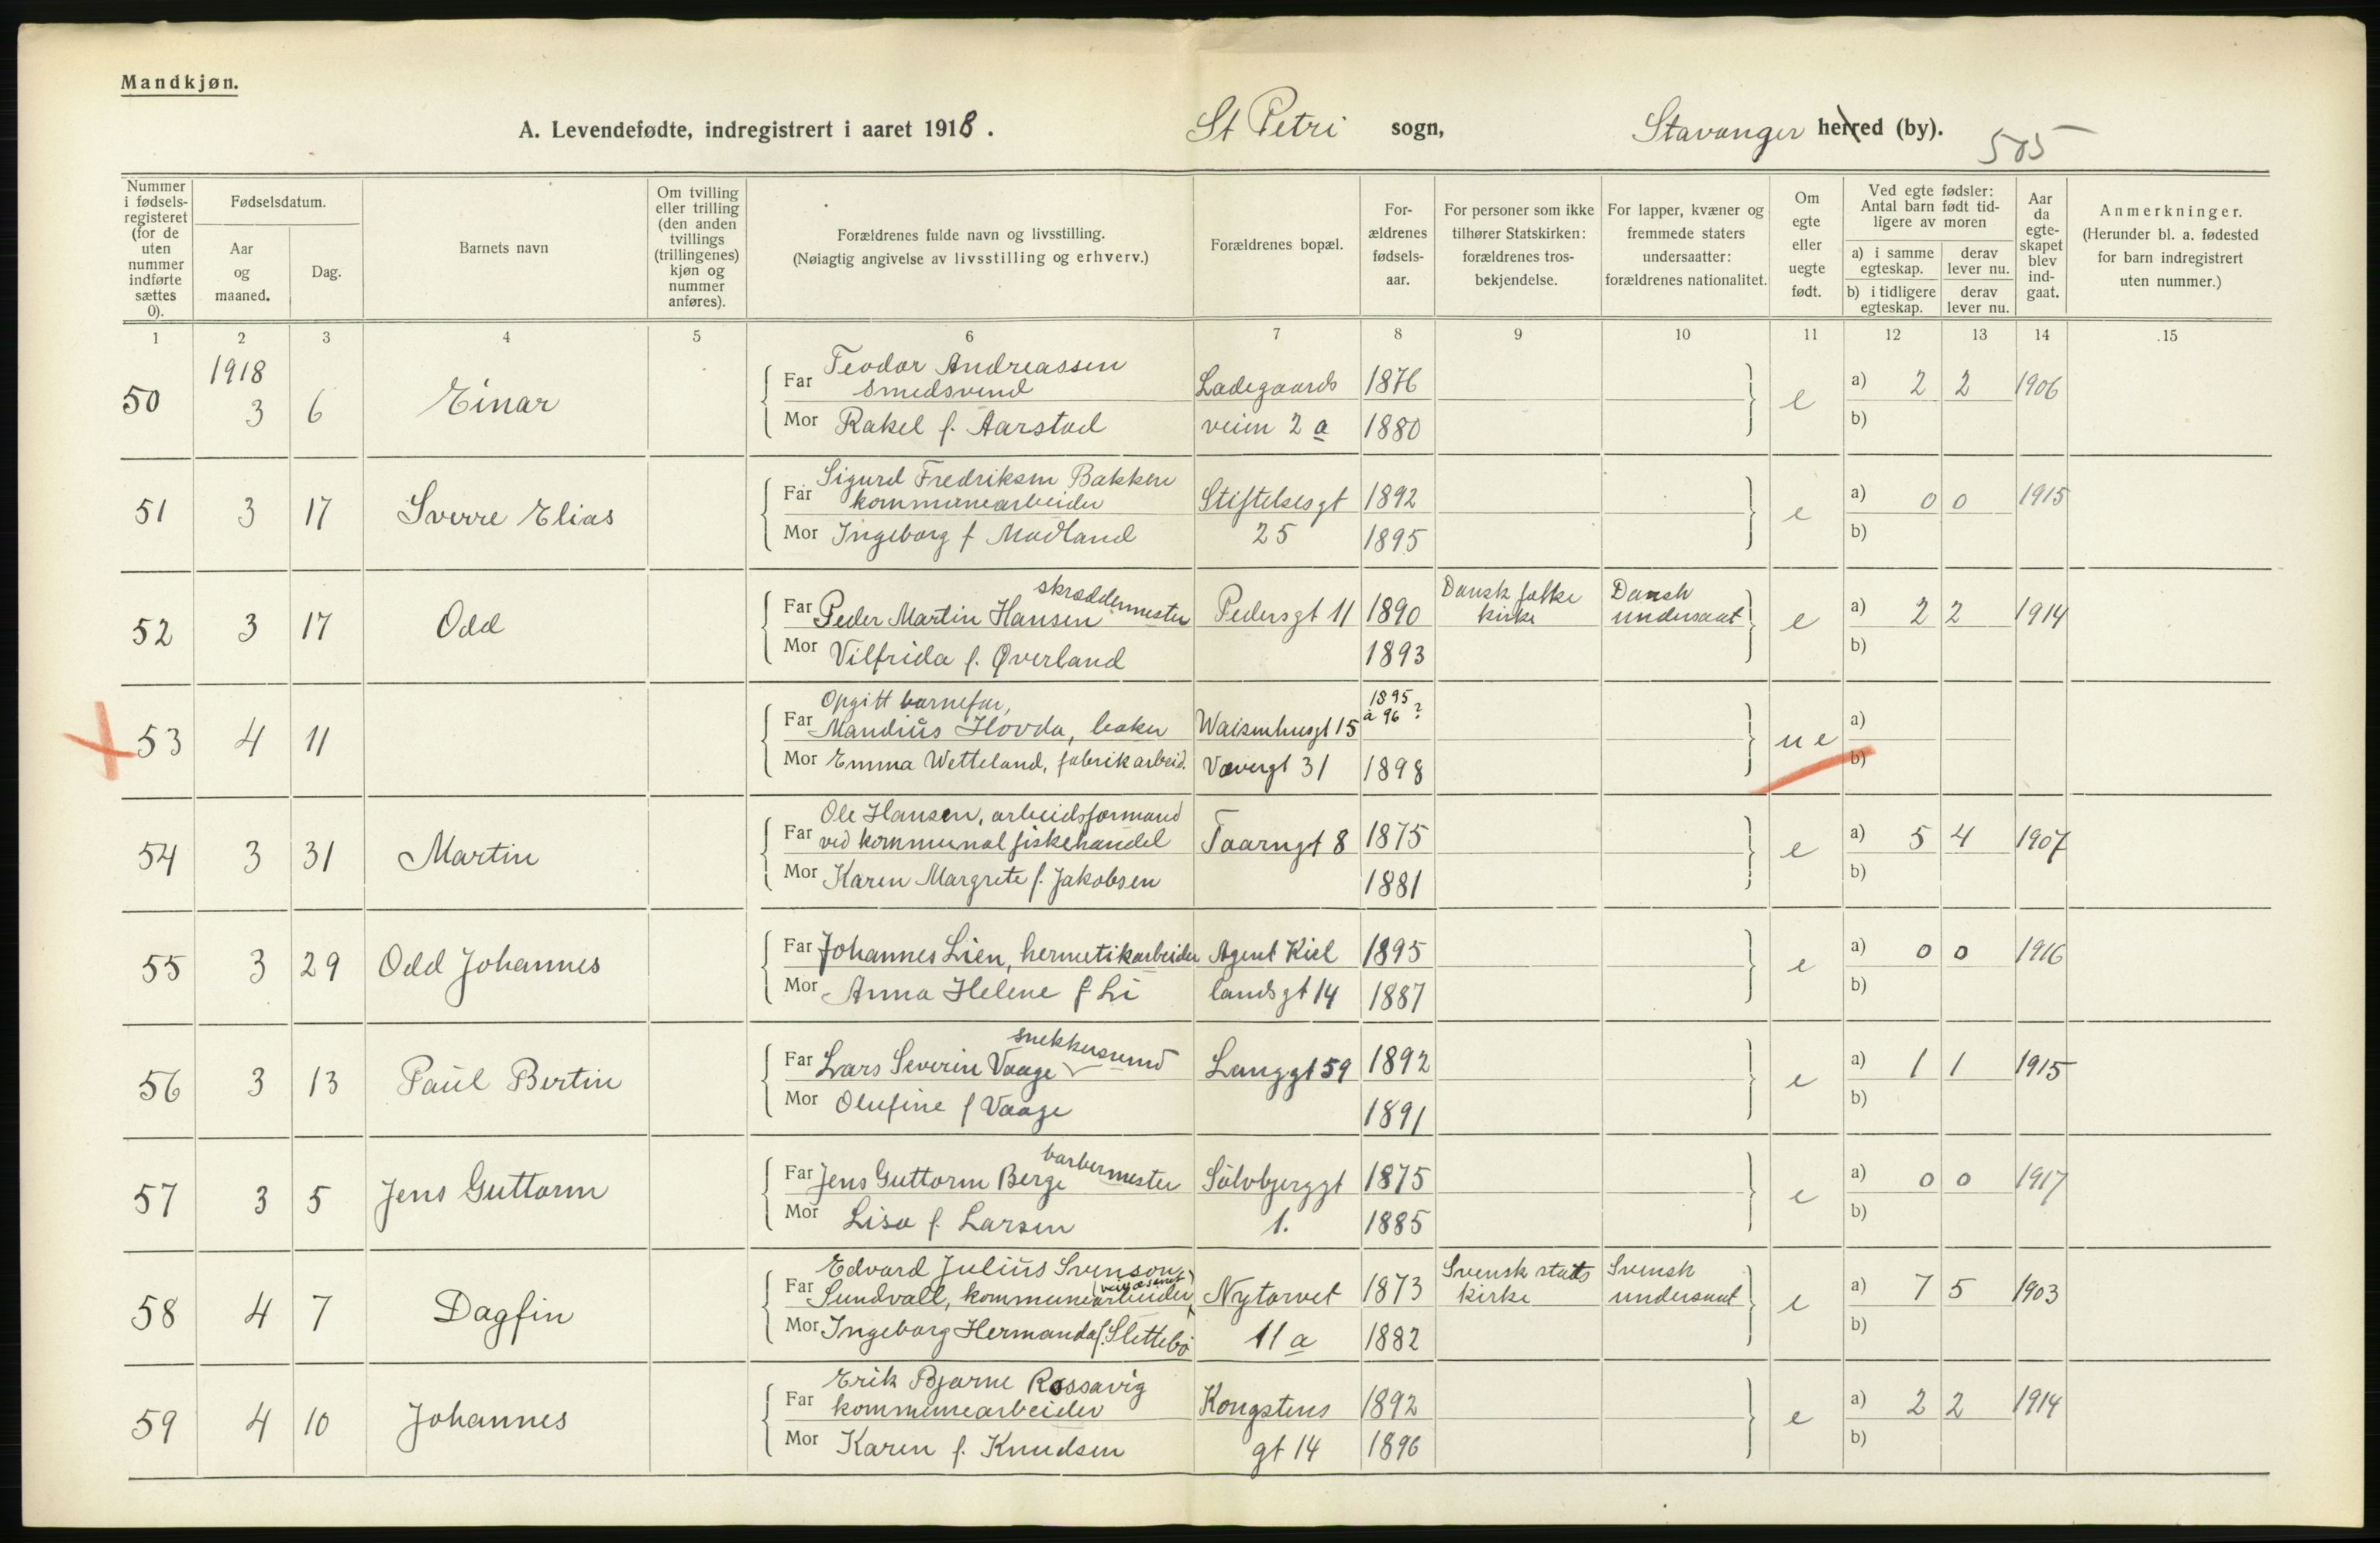 Mandkjøn.
A. Levendefødte, indregistrert i aaret 1918. St Petri sogn, Stavanger herred (by).
505
Nummer i fødselsregisteret (for de uten nummer indførte sættes 0).
Fødselsdatum.
Aar og maaned.
Dag.
Barnets navn
Om tvilling eller trilling (den anden tvillings (trillingenes) kjøn og nummer anføres).
Forældrenes fulde navn og livsstilling.
(Nøiagtig angivelse av livsstilling og erhverv.)
Forældrenes bopæl.
For-ældrenes fødsels-aar.
For personer som ikke tilhører Statskirken: forældrenes tros-bekjendelse.
For lapper, kvæner og fremmede staters undersaatter: forældrenes nationalitet.
Om egte eller uegte født.
Ved egte fødsler: Antal barn født tid-ligere av moren
a) i samme egteskap. derav lever nu.
b) i tidligere egteskap. derav lever nu.
Aar da egte-skapet blev ind-gaat.
Anmerkninger.
(Herunder bl. a. fødested for barn indregistrert uten nummer.)
1 2 3 4 5 6 7 8 9 10 11 12 13 14 15
1918
50 3 6 Einar
Far Teodor Andreassen
smedsvend Ladegaards 1876 e a) 2 2 1906
Mor Rakel f. Aarstad veien 2 a 1880 b)
51 3 17 Sverre Elias
Far Sigurd Fredriksen Bakken
kommunearbeider Stiftelsesgt 1892 e a) 0 0 1915
Mor Ingeborg f Modland 25 1895 b)
52 3 17 Odd
Far Peder Martin Hansen skræddermester Pedersgt 11 1890 Dansk folke kirke Dansk undersaat e a) 2 2 1914
Mor Vilfrida f. Øverland 1893 b)
53 4 11
Opgitt barnefar,
Far Mandius Hovda, baker Waisenhusgt 15 1895 à 96? ue a)
Mor Emma Wetteland, fabrikarbeid. Vævergt 31 1898 b)
54 3 31 Martin
Ole Hansen, arbeidsformand
Far ved kommunal fiskehandel Taarngt 8 1875 e a) 5 4 1907
Mor Karen Margrete f. Jakobsen 1881 b)
55 3 29 Odd Johannes
Far Johannes Lien, hermetikarbeider Agent Kiel 1895 e a) 0 0 1916
Mor Anna Helene f Li landsgt 14 1887 b)
56 3 13 Paul Bertin
Far Lars Severin Vaage snekkersvend Langgt 59 1892 e a) 1 1 1915
Mor Olufine f Vaage 1891 b)
57 3 5 Jens Guttorm
Far Jens Guttorm Berge barbermester Sølvbjerggt 1875 e a) 0 0 1917
Mor Lisa f. Larsen 1. 1885 b)
58 4 7 Dagfin
Edvard Julius Svenson
Far Sundvall, kommunearbeider Nytorvet 1873 Svensk stats kirke Svensk undersaat e a) 7 5 1903
Mor Ingeborg Hermanda f. Slettebø 11 a 1882 b)
59 4 10 Johannes
Erik Bjarne Rossavig
Far kommunearbeider Kongstens 1892 e a) 2 2 1914
Mor Karen f. Knudsen gt 14 1896 b)